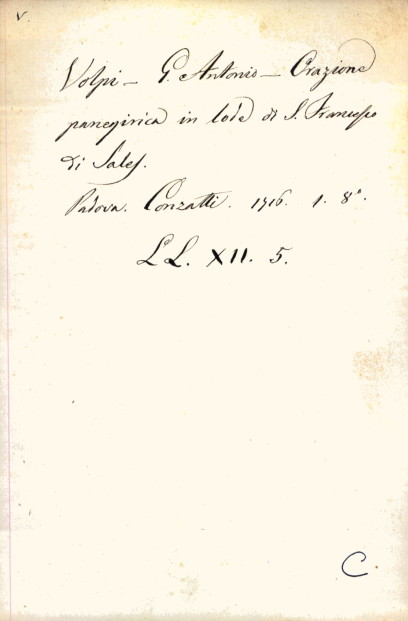 V
Volpi - G. Antonio - Orazione
panegirica in lode di S. Francesco
di Sales.
Padova. Conzatti. 1716. 1. 8°.
LL. XII. 5.
C.